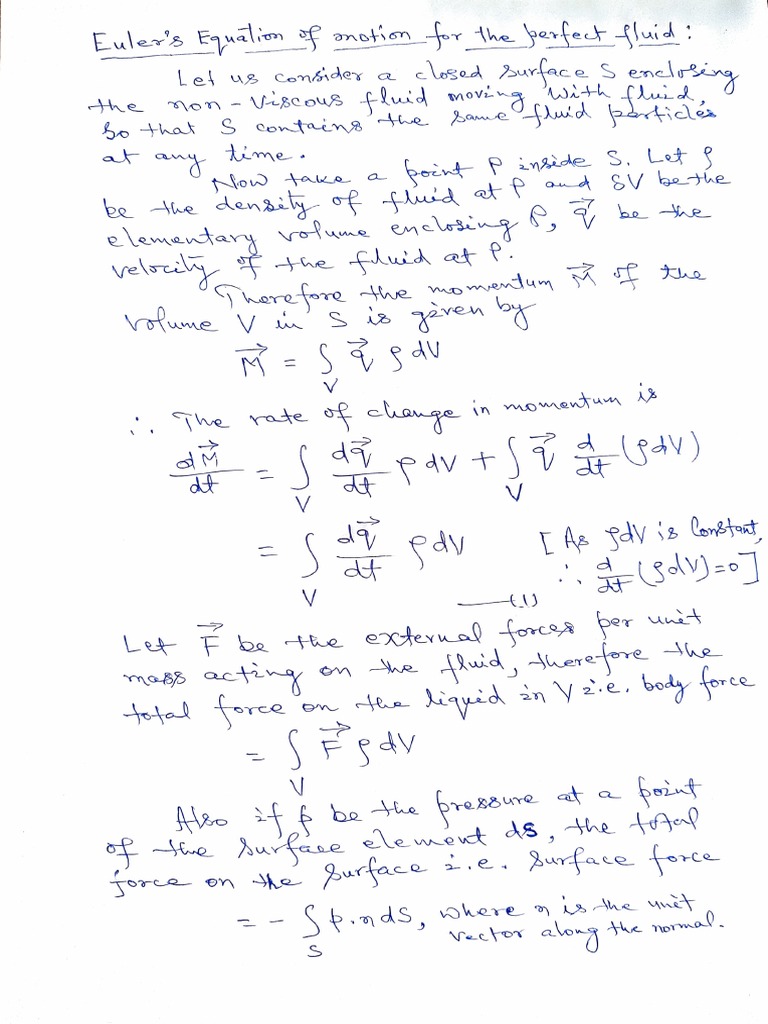 Euler's Equation of motion for the perfect fluid :
Let us consider a closed surface S enclosing
the non-viscous fluid moving with fluid,
so that S contains the same fluid particles
at any time.
Now take a point P inside S. Let ρ
be the density of fluid at P and δV be the
elementary volume enclosing P, q⃗ be the
velocity of the fluid at P.
Therefore the momentum M⃗ of the
volume V in S is given by
M⃗ = ∫_V q⃗ ρ dV
∴ The rate of change in momentum is
dM⃗/dt = ∫_V dq⃗/dt ρ dV + ∫_V q⃗ d/dt (ρdV)
= ∫_V dq⃗/dt ρdV [As ρdV is constant,
∴ d/dt (ρdV) = 0]
—(1)
Let F⃗ be the external forces per unit
mass acting on the fluid, therefore the
total force on the liquid in V i.e. body force
= ∫_V F⃗ ρdV
Also if p be the pressure at a point
of the surface element ds, the total
force on the surface i.e. surface force
= - ∫_S p.n dS, where n is the unit
vector along the normal.